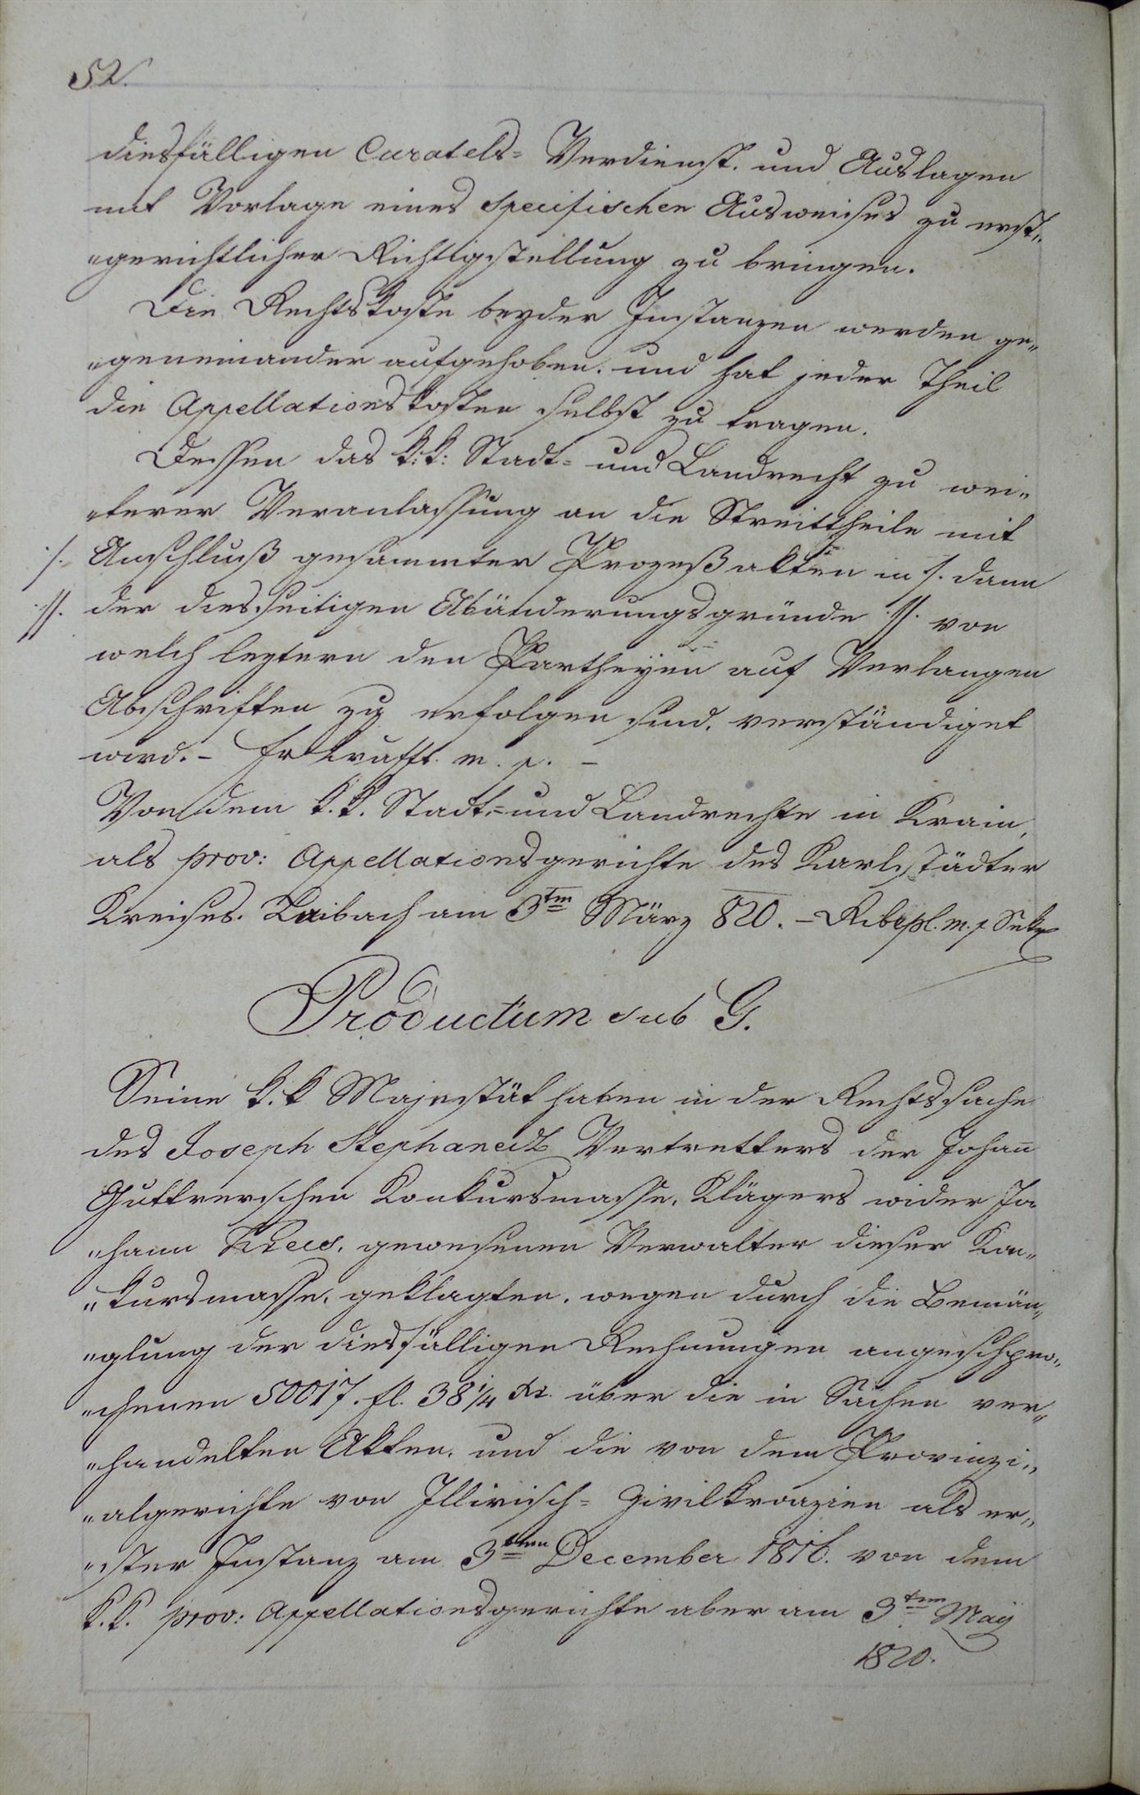 52.
diesfälligen Curatels= Verdienst. und Auslagen
mit Vorlage eines specifischen Ausweises zu erst„
„gerichtlicher Richtigstellung zu bringen.
Die Rechtskosten beyder Instanzen werden ge„
„geneinander aufgehoben. und hat jeder Theil
die Appellationskosten selbst zu tragen.
Dessen das k: k: Stadt= und Landrecht zu wei„
„terer Veranlassung an die Streittheile mit
./. Anschluß gesammter Prozeßakten in ./. dann
.//. der diesseitigen Abänderungsgründe .//. von
welch leztern den Partheyen auf Verlangen
Abschriften zu erfolgen sind. verständiget
wird. – m. p. –
Von dem k. k. Stadt=und Landrechte in Krain,
als prov: Appellationsgerichte des Karlstädter
Kreises. Laibach am 3ten März 820. – m. p
Productum sub G.
Seine k. k Majestät haben in der Rechtssache
des Joseph Vertretters der Johan̄
Konkursmasse, Klägers wider Jo
„hann gewesenen Verwalter dieser Kon„
„kursmasse, geklagten. wegen durch die Bemän„
„glung der diesfälligen Rechnungen angesprо„
„chenen 50017. fl. 38¼ xr. über die in Sachen ver„
„handelten Akten. und die von dem Provinzi„
„algerichte von Illirisch= Zivilkroazien als er„
„ster Instanz am 3ten December 1816. von dem
k. k. prov: Appellationsgerichte aber am 3ten May
1820.